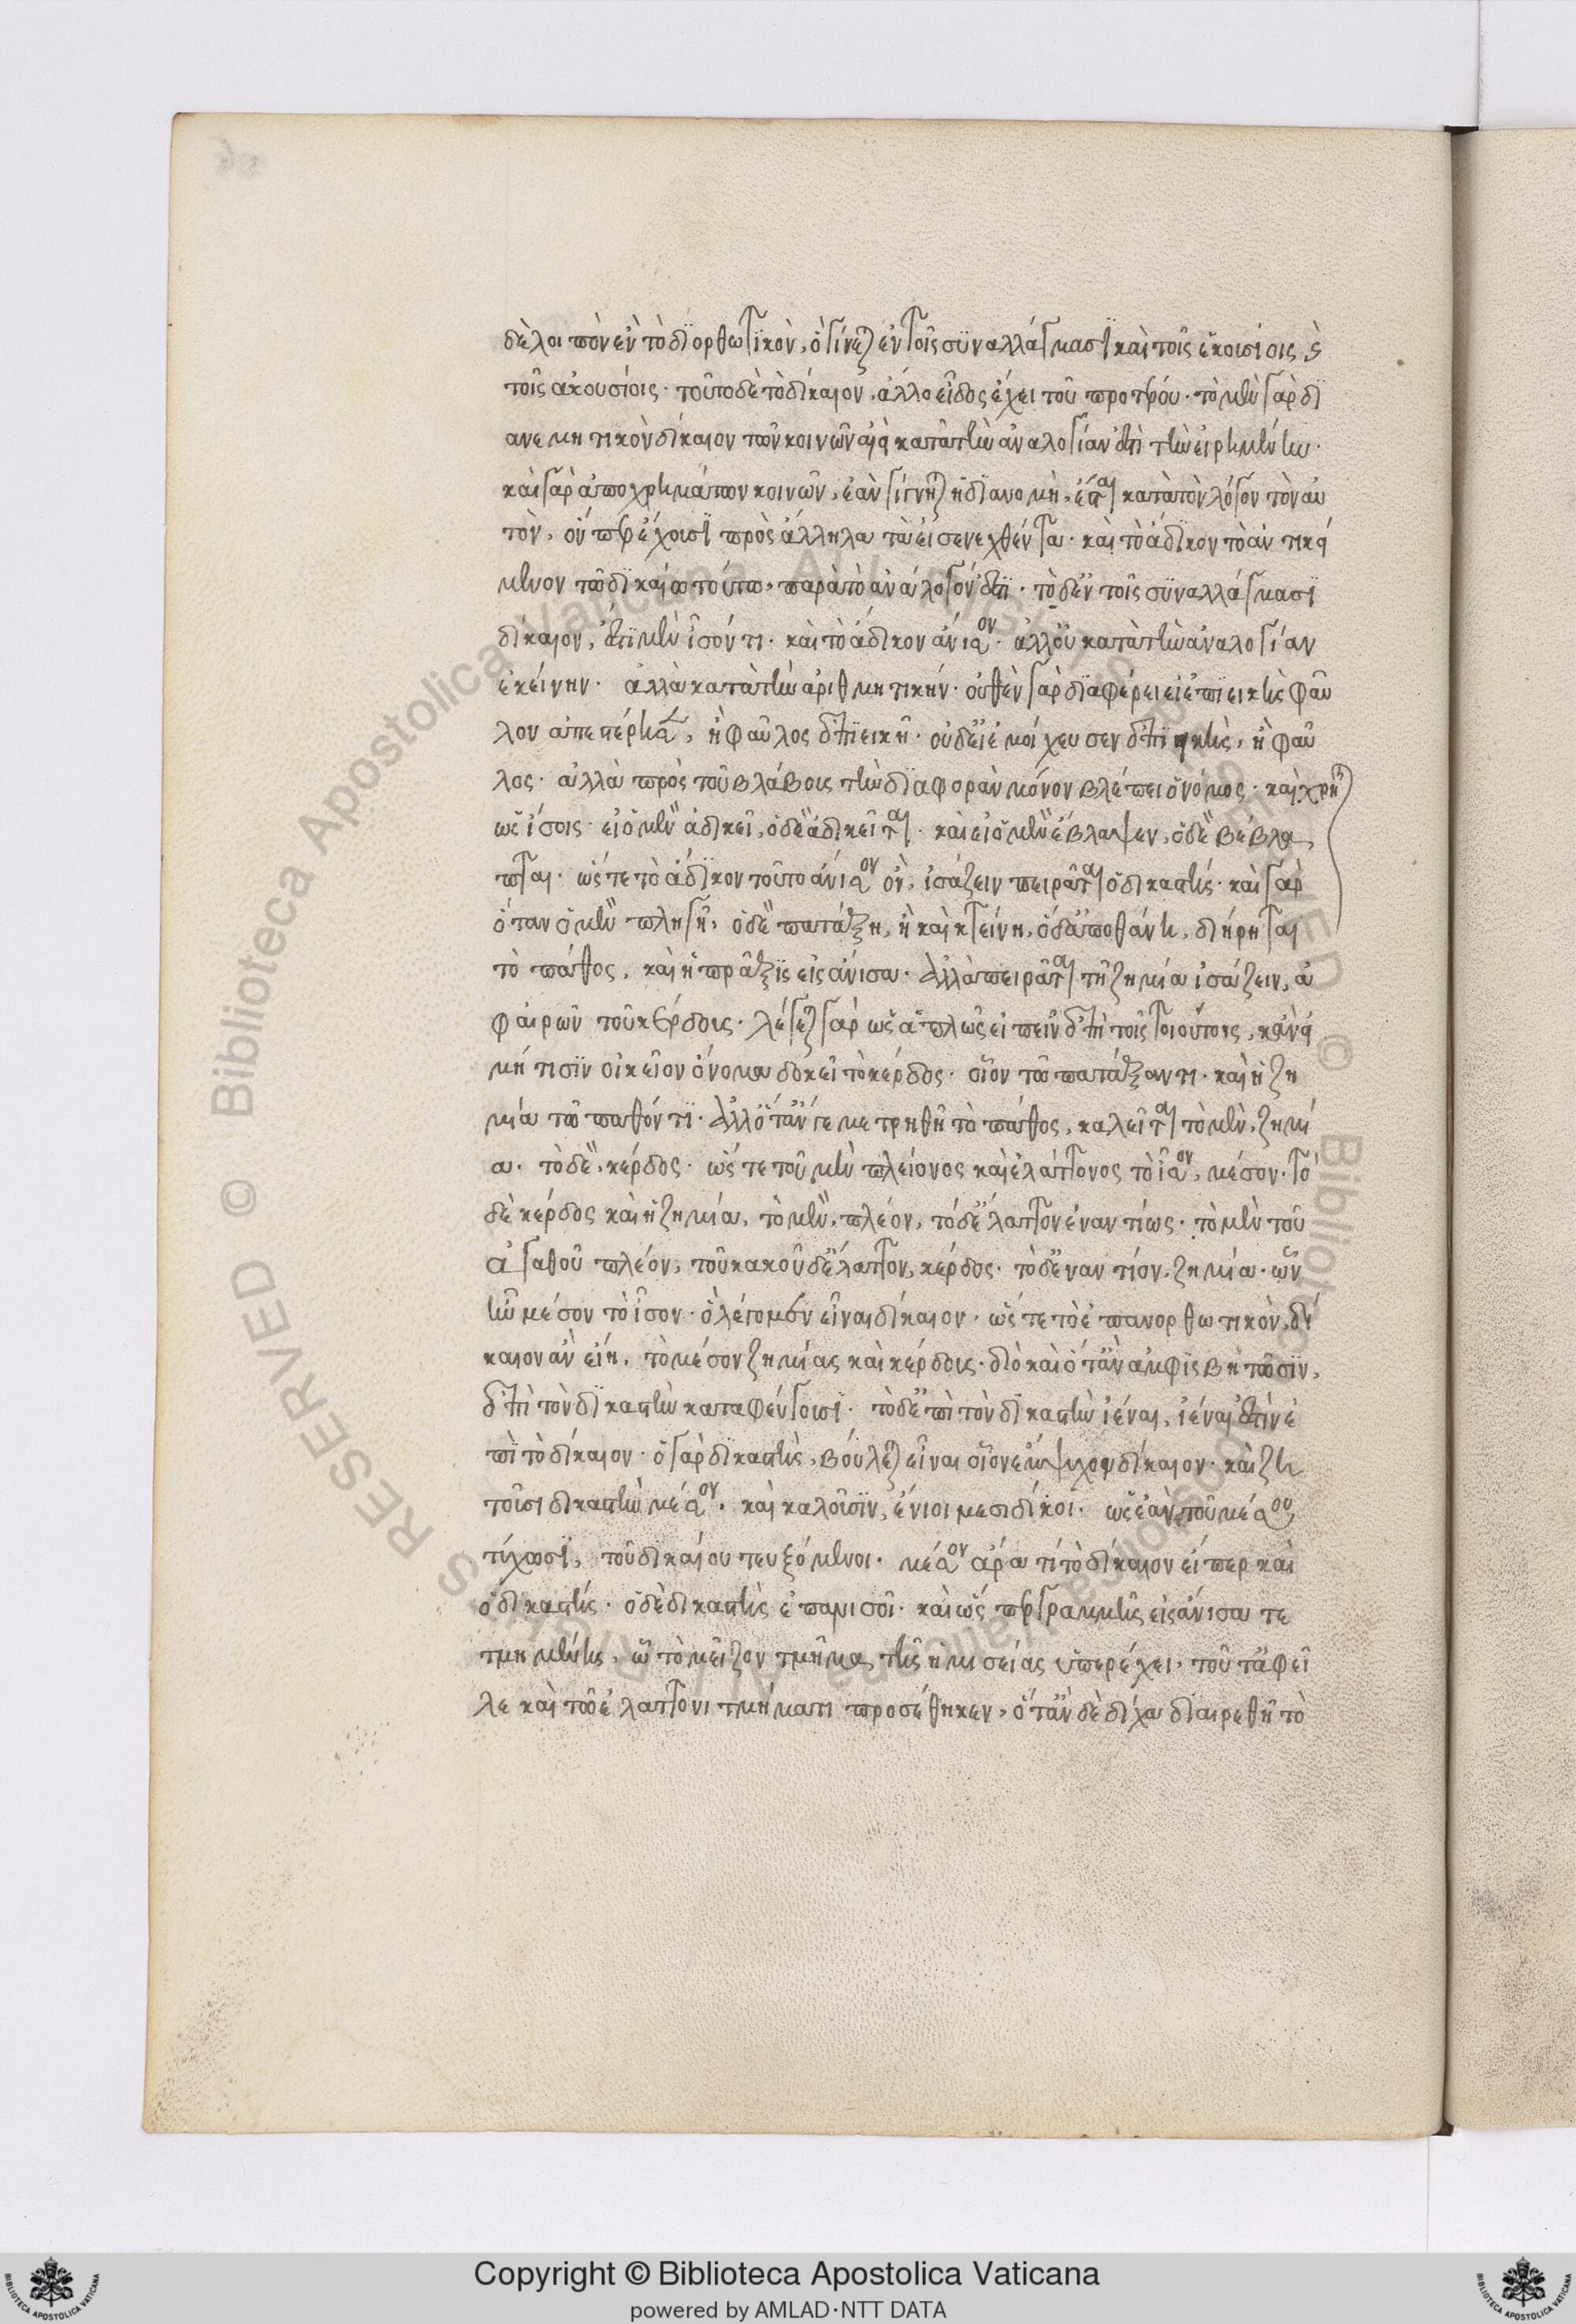 δὲ λοιπὸν ἓν τὸ διορθωτικὸν, ὃ γίνεται ἐν τοῖς συναλλάγμασι καὶ τοῖς ἑκουσίοις καὶ
τοῖς ἀκουσίοις· τοῦτο δὲ τὸ δίκαιον, ἄλλο εἶδος ἔχει τοῦ προτέρου· τὸ μὲν γὰρ δι
ανεμητικὸν δίκαιον τῶν κοινῶν ἀεὶ κατὰ τὴν ἀναλογίαν ἐστὶ τὴν εἰρημένην·
καὶ γὰρ ἀπὸ χρημάτων κοινῶν, ἐὰν γίγνηται ἡ διανομὴ, ἔσται κατὰ τὸν λόγον τὸν αὐ
τὸν, ὅνπερ ἔχουσι πρὸς ἄλληλα τὰ εἰσενεχθέντα· καὶ τὸ ἄδικον τὸ ἀντικεί
μενον τῶ δικαίω τούτω, παρὰ τὸ ἀνάλογόν ἐστι· τὸ δ' ἐν τοῖς συναλλάγμασι
δίκαιον, ἐστὶ μὲν ἴσόν τι· καὶ τὸ ἄδικον ἄνισον· ἀλλ' οὐ κατὰ τὴν ἀναλογίαν
ἐκείνην· ἀλλὰ κατὰ τὴν ἀριθμητικήν· οὐθὲν γὰρ διαφέρει εἰ ἐπιεικὴς φαῦ
λον ἀπεστέρησεν, ἢ φαῦλος ἐπιεικῆ· οὐδ' εἰ ἐμοίχευσεν ἐπιεικὴς, ἢ φαῦ
λος· ἀλλὰ πρὸς τοῦ βλάβους τὴν διαφορὰν μόνον βλέπει ὁ νόμος· καὶ χρῆται
ὡς ἴσοις· εἰ ὁ μὲν ἀδικεῖ, ὁ δὲ ἀδικεῖται· καὶ εἰ ὁ μὲν ἔβλαψεν, ὁ δὲ βέβλα
πται· ὥστε τὸ ἄδικον τοῦτο ἄνισον ὂν, ἰσάζειν πειρᾶται ὁ δικαστής· καὶ γὰρ
ὅταν ὁ μὲν πληγῆ, ὁ δὲ πατάξη, ἢ καὶ κτείνη, ὁ δ' ἀποθάνη, διήρηται
τὸ πάθος, καὶ ἡ πρᾶξις εἰς ἄνισα· ἀλλὰ πειρᾶται τῆ ζημία ἰσάζειν, ἀ
φαιρῶν τοῦ κέρδους· λέγεται γὰρ ὡς ἁπλῶς εἰπεῖν ἐπὶ τοῖς τοιούτοις, κἂν εἰ
μή τισιν οἰκεῖον ὄνομα δόκει τὸ κέρδος· οἷον τῶ πατάξαντι· καὶ ἡ ζη
μία τῶ παθόντι· ἀλλ' ὅταν γε μετρηθῆ τὸ πάθος, καλεῖται τὸ μὲν, ζημί
α· τὸ δὲ, κέρδος· ὥστε τοῦ μὲν πλείονος καὶ ἐλάττονος τὸ ἴσον, μέσον· τὸ
δὲ κέρδος καὶ ἡ ζημία, τὸ μὲν, πλέον, τὸ δ' ἔλαττον ἐναντίως· τὸ μὲν τοῦ
ἀγαθοῦ πλέον, τοῦ κακοῦ δ' ἔλαττον, κέρδος· τὸ δ' ἐναντίον, ζημία· ὧν
ἦν μέσον τὸ ἴσον· ὃ λέγομεν εἶναι δίκαιον· ὥστε τὸ ἐπανορθωτικὸν, δί
καιον ἂν εἴη, τὸ μέσον ζημίας καὶ κέρδους· διὸ καὶ ὅταν ἀμφισβητῶσιν,
ἐπὶ τὸν δικαστὴν καταφεύγουσι· τὸ δ' ἐπὶ τὸν δικαστὴν ἰέναι, ἰέναι ἐστὶν ἐ
πὶ τὸ δίκαιον· ὁ γὰρ δικαστὴς, βούλεται εἶναι οἷον ἔμψυχον δίκαιον· καὶ ζη
τοῦσι δικαστὴν μέσον, καὶ καλοῦσιν, ἔνιοι μεσιδίκοι· ὡς ἐὰν τοῦ μέσου
τύχωσι, τοῦ δικαίου τευξόμενοι· μέσον ἄρα τί τὸ δίκαιον εἴπερ καὶ
ὁ δικαστής· ὁ δὲ δικαστὴς ἐπανισοῖ· καὶ ὥσπερ γραμμῆς εἰς ἄνισα τε
τμημένης, ᾧ τὸ μεῖζον τμῆμα τῆς ἡμισείας ὑπερέχει, τοῦτ' ἀφεῖ
λε καὶ τῶ ἐλάττονι τμήματι προσέθηκεν, ὅταν δὲ δίχα διαιρεθῆ τὸ
Copyright © Biblioteca Apostolica Vaticana
powered by AMLAD·NTT DATA